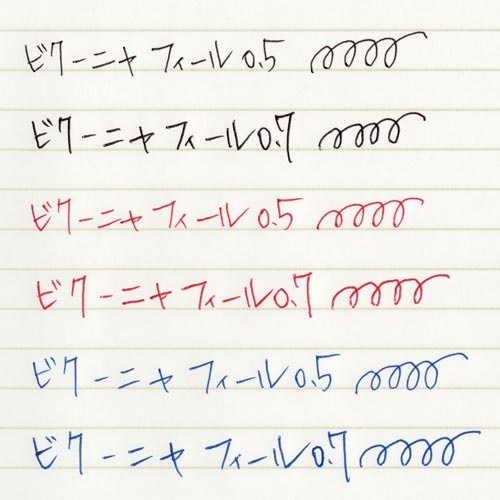 ビクーニャ フィール 0.5
ビクーニャ フィール 0.7
ビクーニャ フィール 0.5
ビクーニャ フィール 0.7
ビクーニャ フィール 0.5
ビクーニャ フィール 0.7